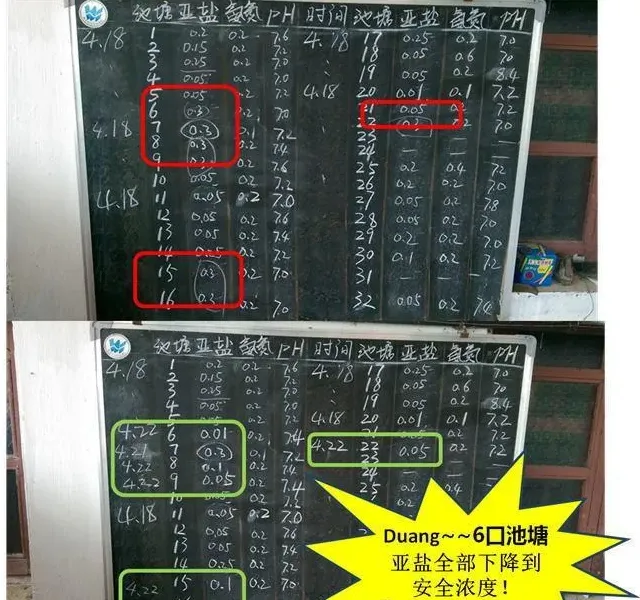 池塘 亚盐 氨氮 PH 时间 池塘 亚盐 氨氮 PH
4.18 1 0.2 0.2 7.6 4.18 17 0.25 0.2 7.0
2 0.15 0.2 7.2 18 0.05 0.6 7.0
3 0.25 0.2 7.0 19 0.05 0.2 8.4
4 0.05 0.2 7.0 4.18 20 0.01 0.1 7.2
5 0.05 0.2 7.2 21 0.05 0.2 7.2
6 0.3 0.2 7.0 22 0.3 0.2 7.0
4.18 7 0.3 0.1 7.2 23 — —
8 0.3 0.2 7.4 24 — —
9 0.2 7.6 25 0.2 0.4 7.2
10 0.05 0.2 7.2 26 0.2 0.2 7.0
4.18 11 0.05 0.2 7.0 27 0.05 0.2 7.8
12 0.05 0.2 7.6 28 0.05 0.2 7.0
13 0.05 0.2 7.4 29 0.2 0.2 7.0
14 0.25 0.2 7.2 30 0.1 0.2 7.2
15 0.3 0.2 7.0 31 — —
16 0.3 0.2 7.0 32 0.05 0.2 7.4
池塘 亚盐 氨氮 PH 时间 池塘 亚盐 氨氮 PH
4.18 1 0.2 0.2 7.6 4.18 17 0.25 0.2 7.0
2 0.15 0.2 7.2 18 0.05 0.6 7.0
3 0.25 0.2 7.0 19 0.05 0.2 8.4
4 0.05 0.2 7.0 4.18 20 0.01 0.1 7.2
5 0.2 7.2 21 0.05 0.2 7.2
4.22 6 0.01 7.4 4.22 22 0.05 0.2 7.2
4.21 7 0.3 0.1 7.2 23
4.22 8 0.1 0.2 24 — —
4.22 9 0.05 0.2 7.4 25 0.2 0.4
10 0.05 0.2
4.18 11 0.05 0.2 7.0
12 0.05 0.2
13 0.05 0.2 7.4
14 0.25 0.2 7.2
4.22 15 0.1 0.2 7.0
Duang~~6口池塘
亚盐全部下降到
安全浓度！